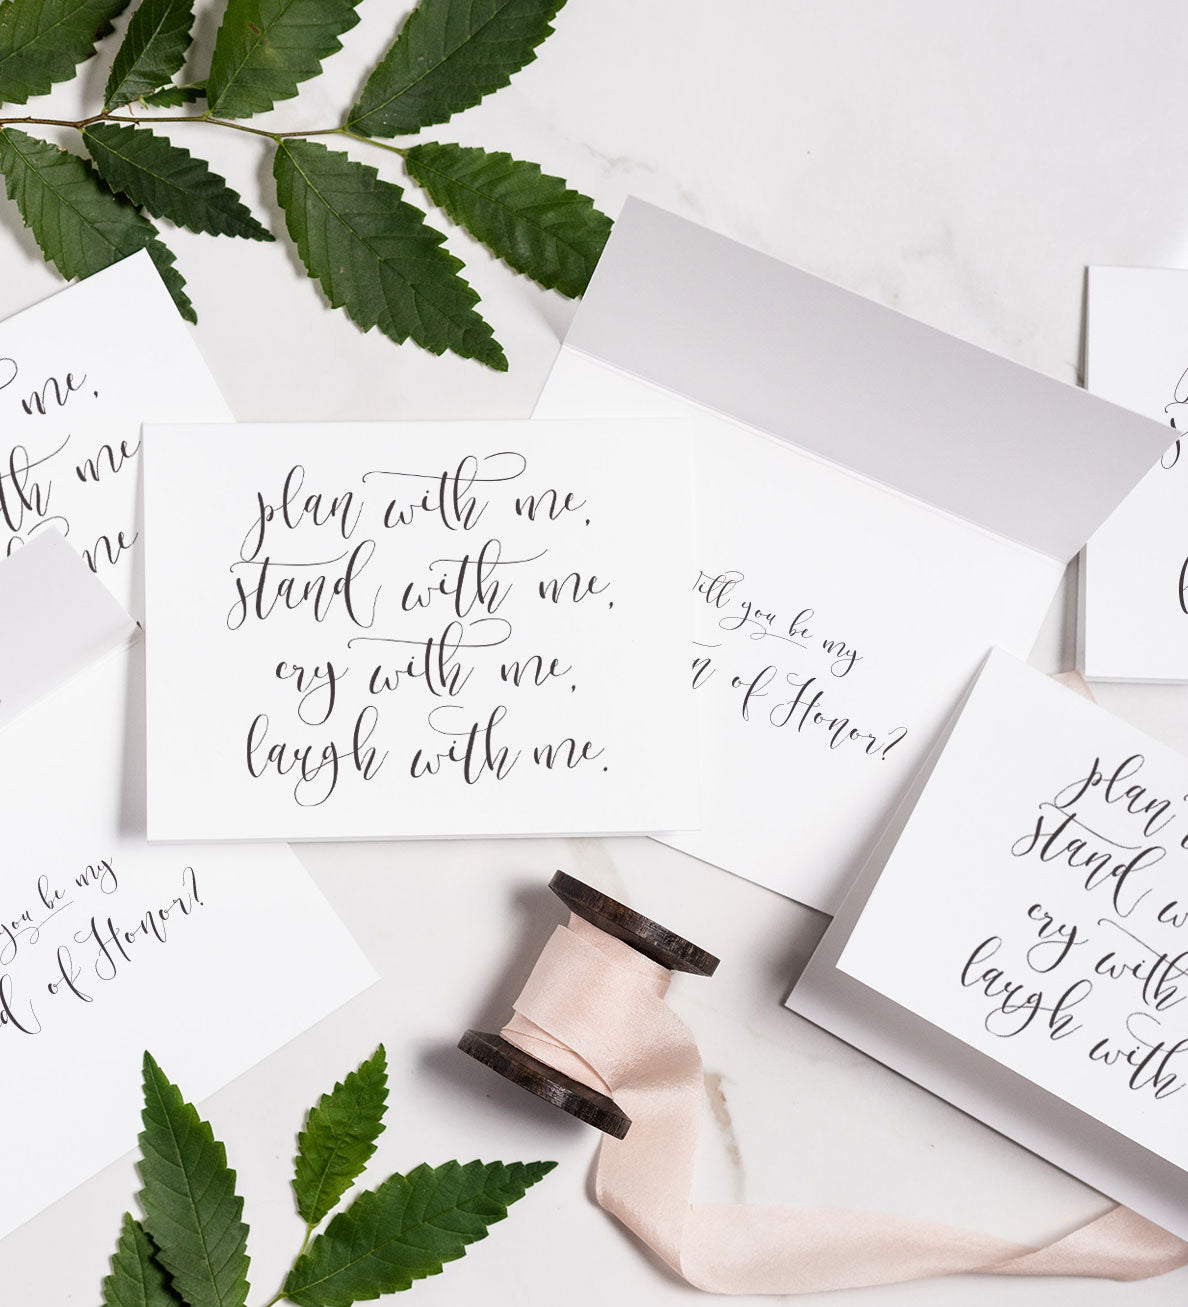 me,
with me
me
plan with me,
stand with me,
cry with me,
laugh with me.
Will you be my
of Honor?
plan
stand
cry with
laugh with
you be my
of Honor?